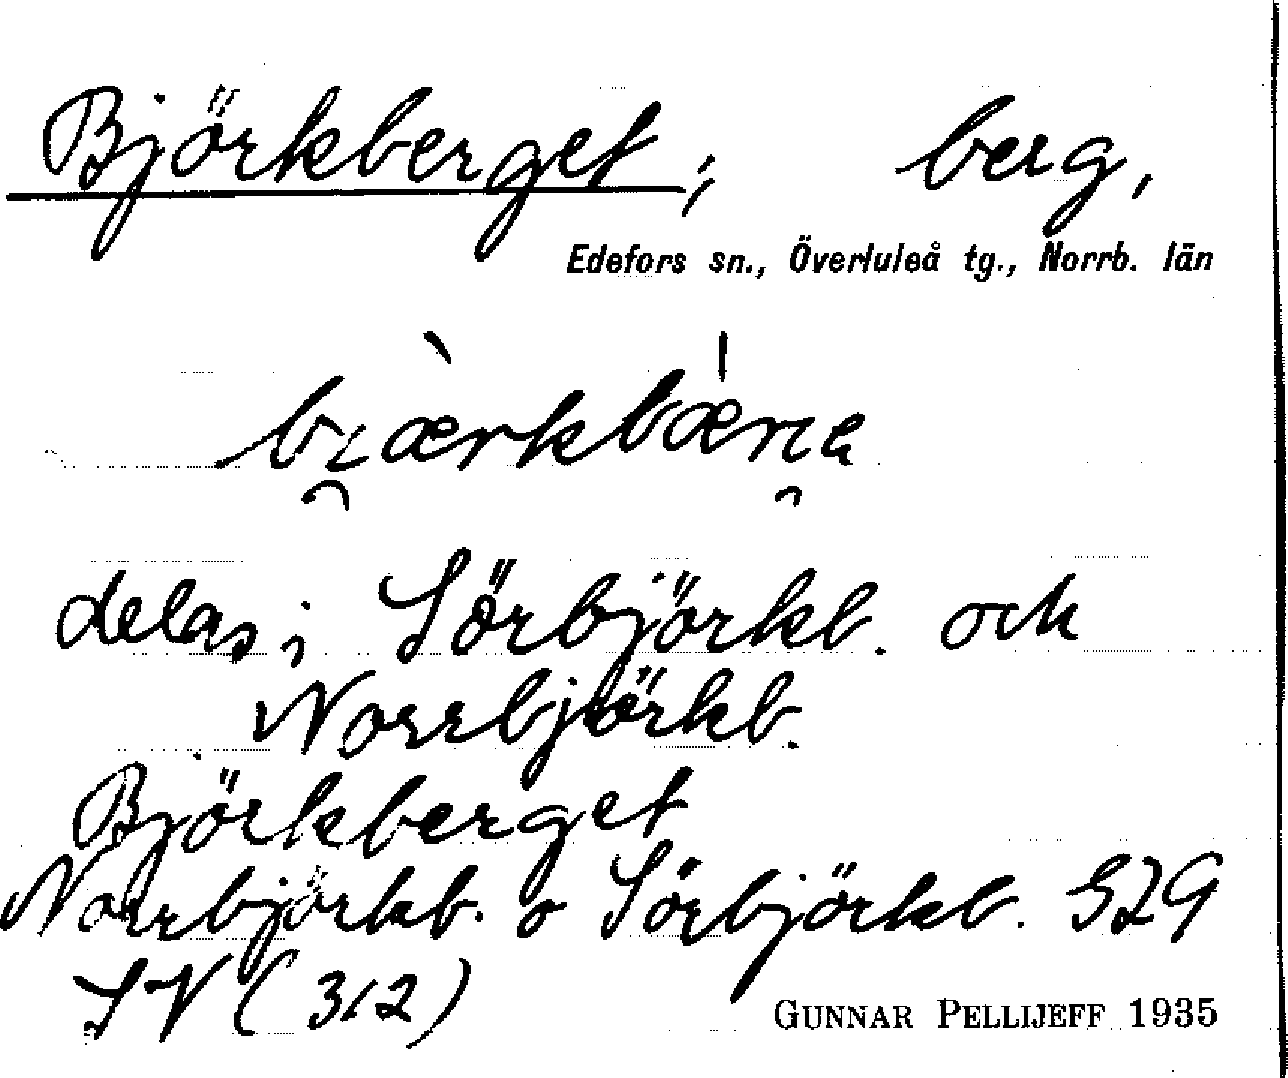 Björkberget; berg,
Edefors sn., Överluleå tg., Norrb. län
delas i Sörbjörkb. och
Norrbjörkb.
Björkberget
Norrbjörkb. o Sörbjörkb. S29
SV (312)
GUNNAR PELLIJEFF 1935